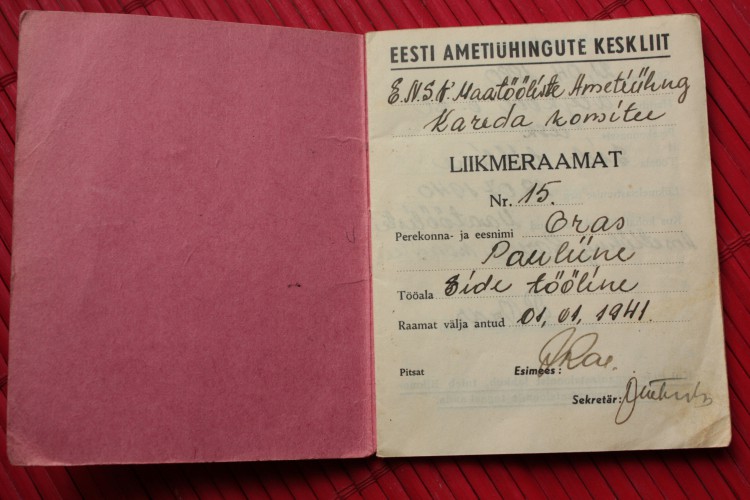 EESTI AMETIÜHINGUTE KESKLIIT
E.N.S.V. Maatööliste Ametiühing
Kareda komitee
LIIKMERAAMAT
Nr. 15.
Perekonna- ja eesnimi Oras
Pauliine
Tööala Side tööline
Raamat välja antud 01,01,1941.
Pitsat Esimees:
Sekretär: